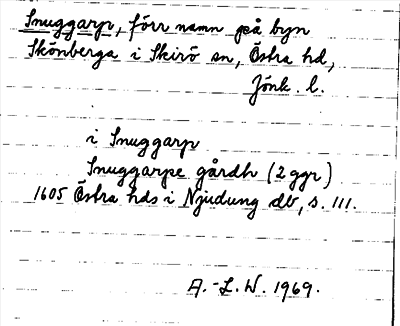 Snuggarp, förr namn på byn
Skönberga i Skirö sn, Östra hd,
Jönk. l.
i Snuggarp
Snuggarpe gårdh (2 ggr)
1605 Östra hds i Njudung db, s. 111.
A.-L.W. 1969.